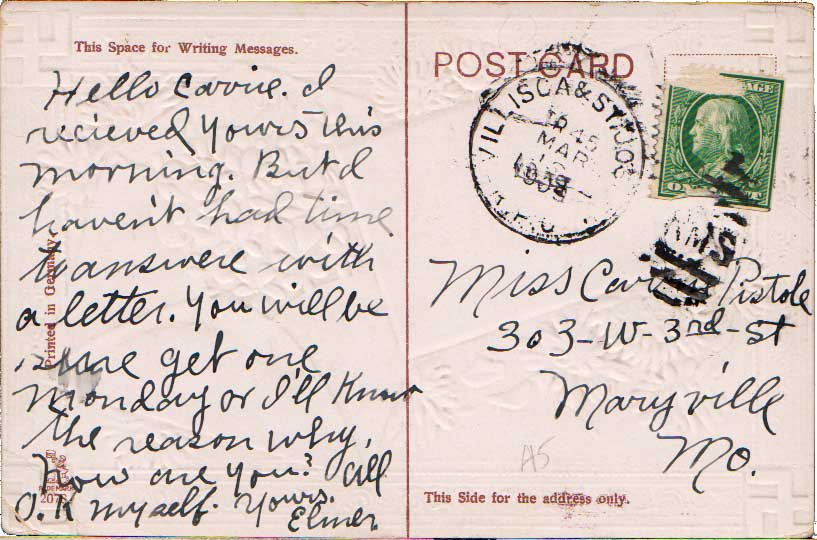 This Space for Writing Messages.
Hello Carrie. I
recieved yours this
morning. But I
haven't had time
to answere with
a letter. You will be
sure get one
Monday or I'll Know
the reason why.
how are you? all
O.K myself. Yours.
Elmer
Printed in Germany
TRADE MARK
POST CARD
VILLISCA & ST. JO
MAR
1909
R.P.O.
RMS
Miss Carrie Pistole
303-W-3rd-St
Maryville
Mo.
A5
This Side for the address only.